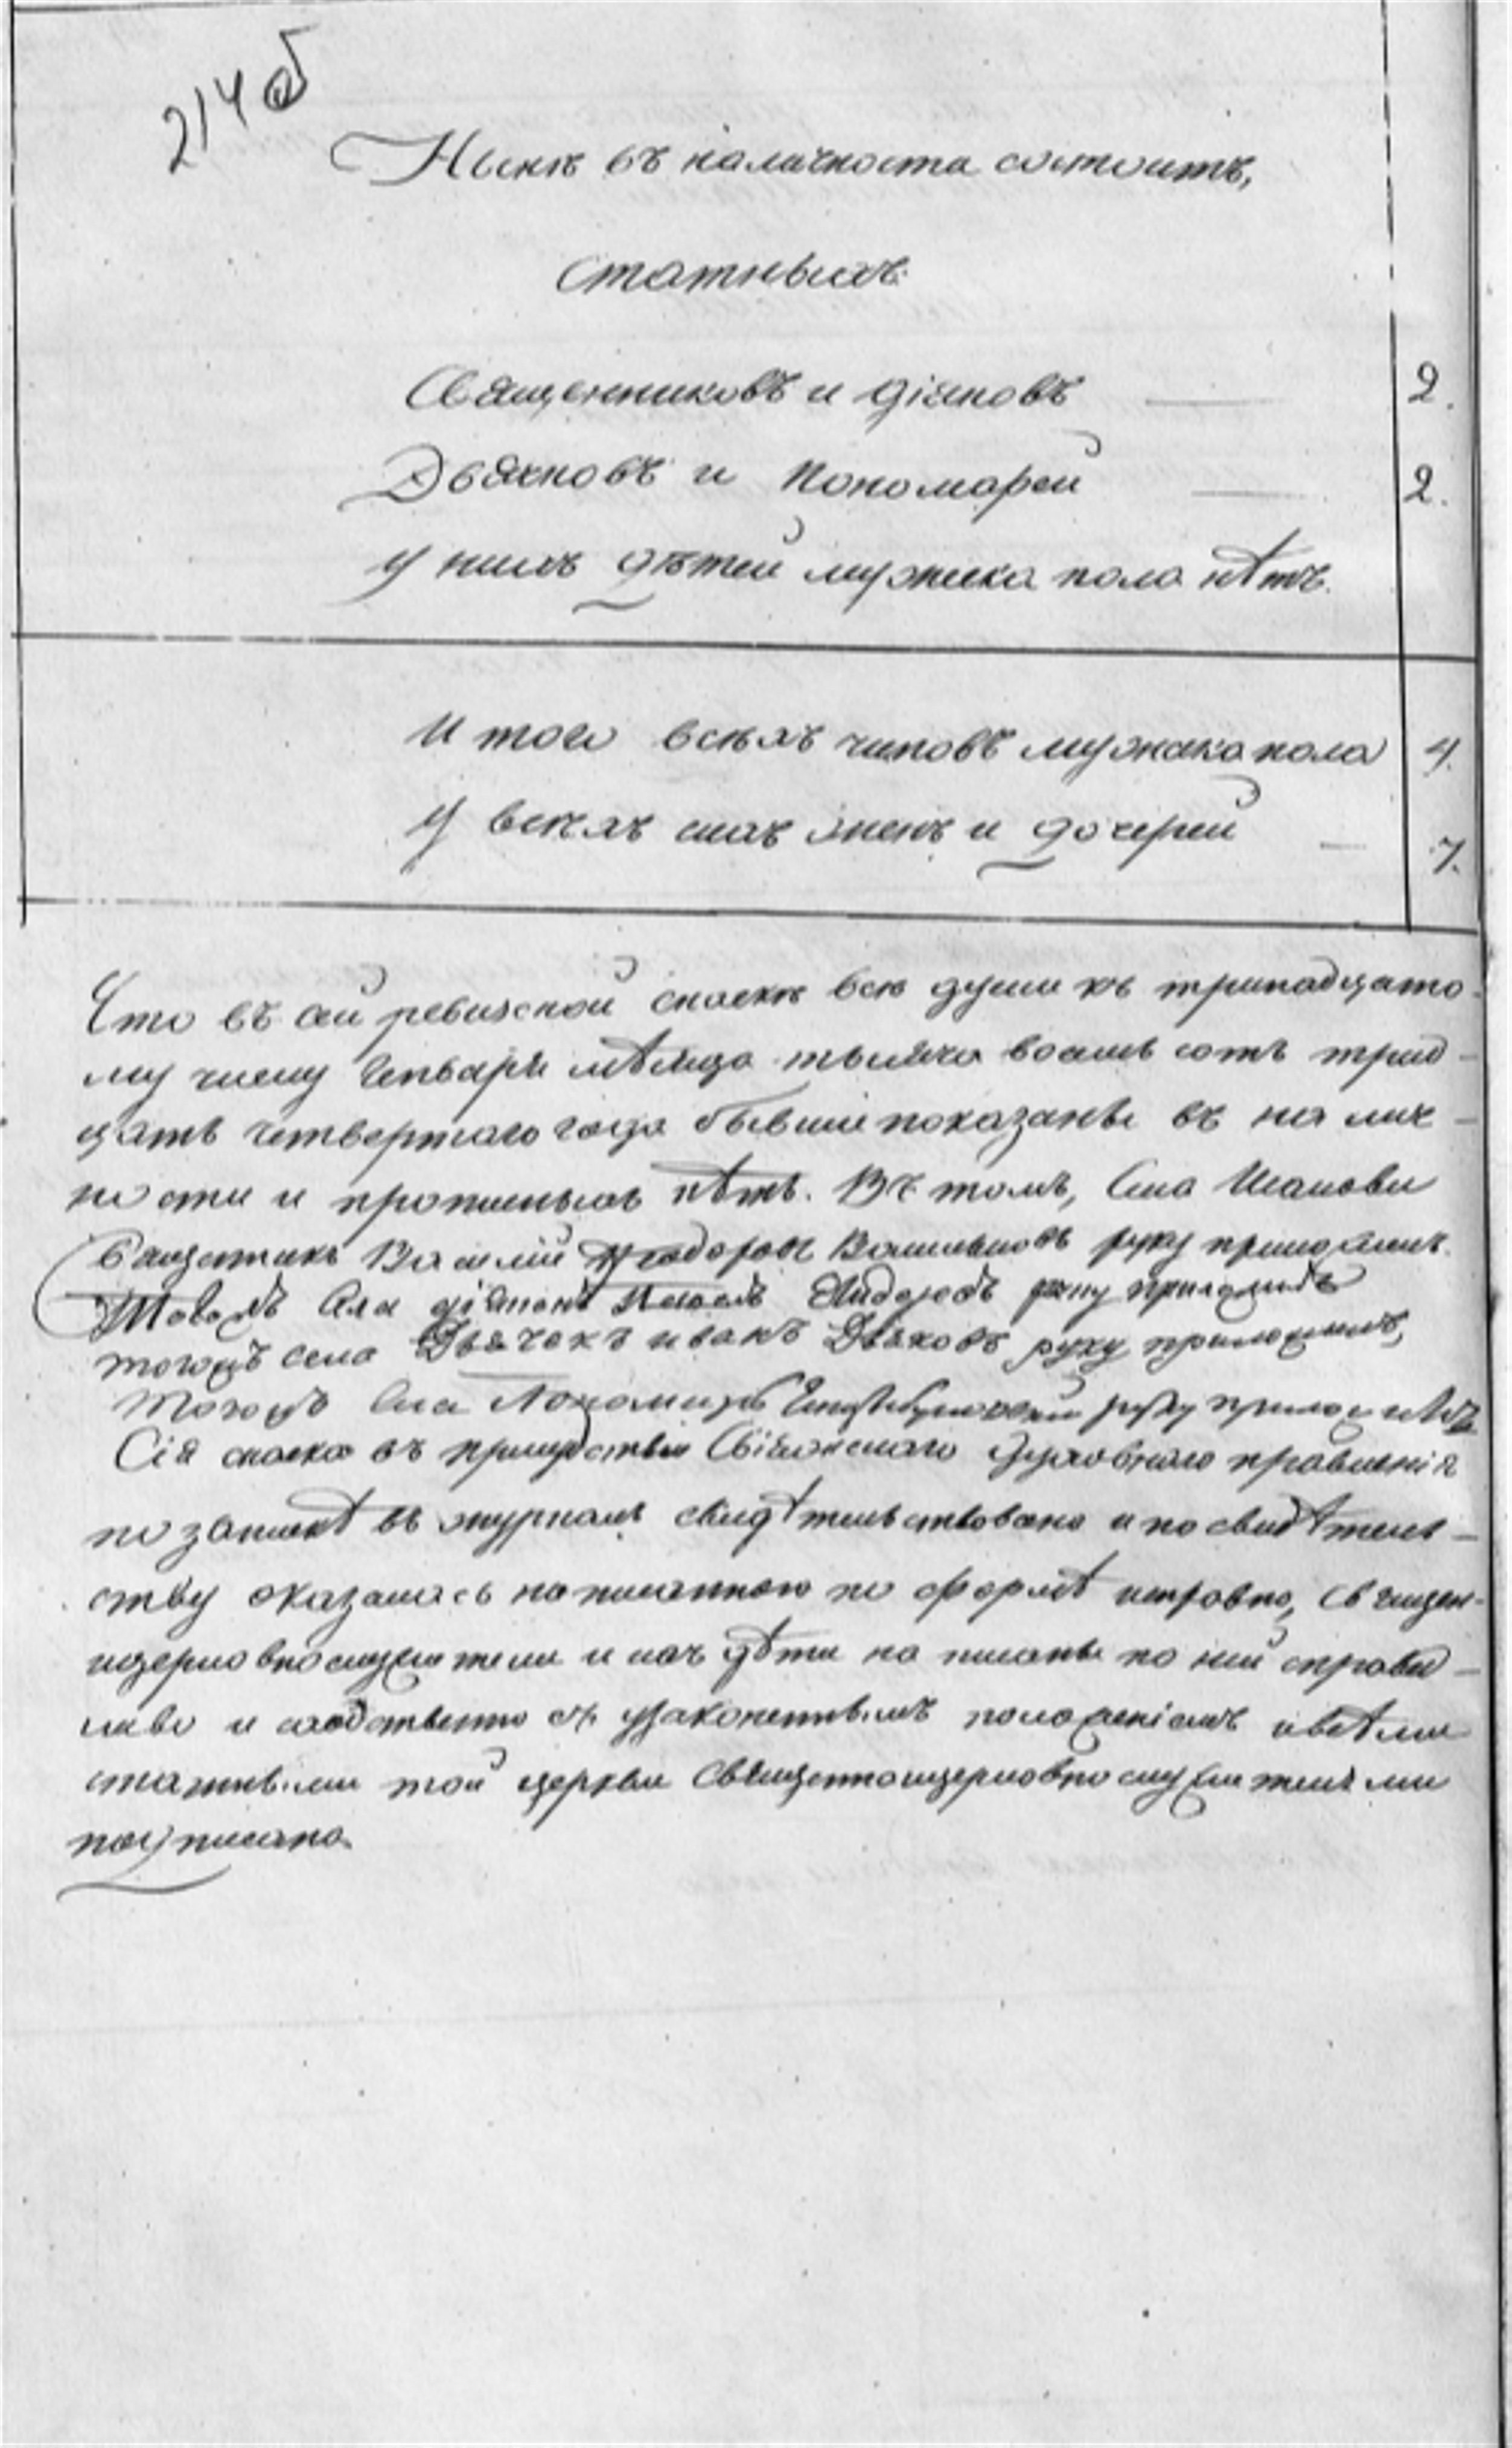 214 об
Нынѣ въ наличности состоитъ,
статныхъ
Священниковъ и діяконовъ 2.
Дьячковъ и Пономарей 2.
у нихъ дѣтей мужеска пола нѣтъ.
Итого всѣхъ чиновъ мужеска пола 4.
У всѣхъ ихъ женъ и дочерей 7.
Что въ сей ревизской сказкѣ всѣ души къ тринадцато-
му числу Генваря мѣсяца тысяча восемь сотъ трид-
цать четвертаго года бывшіе показаны въ на лич-
ности и прописныхъ нѣтъ. Въ томъ, Села
Священникъ Василій руку приложилъ.
Тогожъ Села діяконъ руку приложилъ
тогожъ села Дьячекъ иванъ Дьяковъ руку приложилъ,
Тогожъ Села Пономарь руку приложилъ
Сія сказка въ присудствіи Свіяжскаго духовнаго правленія
по запискѣ въ журналъ свидѣтельствована и по свидѣтель-
ству оказалась написанною по формѣ исправно, священ-
ноцерковнослужители и ихъ дѣти на писаны по ней справед-
ливо и сходственно съ узаконеннымъ положеніемъ и всѣми
статными той церкви священноцерковнослужителями
подписана.